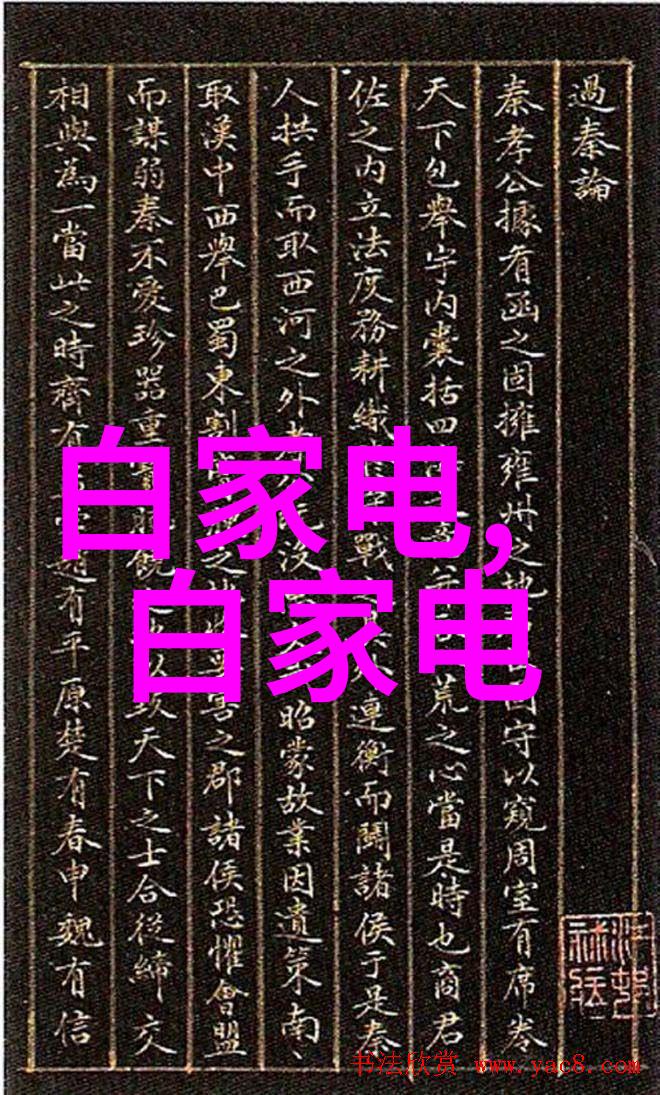 過秦論
秦孝公據肴函之固擁雍州之地固守以窺周室有席卷
天下包舉宇内囊括四荒之心當是時也商君
佐之内立法度務耕織戰連衡而鬭諸侯于是秦
人拱手而取西河之外没昭蒙故業因遺策南
取漢中西舉巴蜀東割之害之郡諸侯恐懼會盟
而謀弱秦不愛珍器重以天下之士合從締交
相與為一當此之時齊有有平原楚有春申魏有信
白家电,
白家电
书法欣赏 www.yac8.com